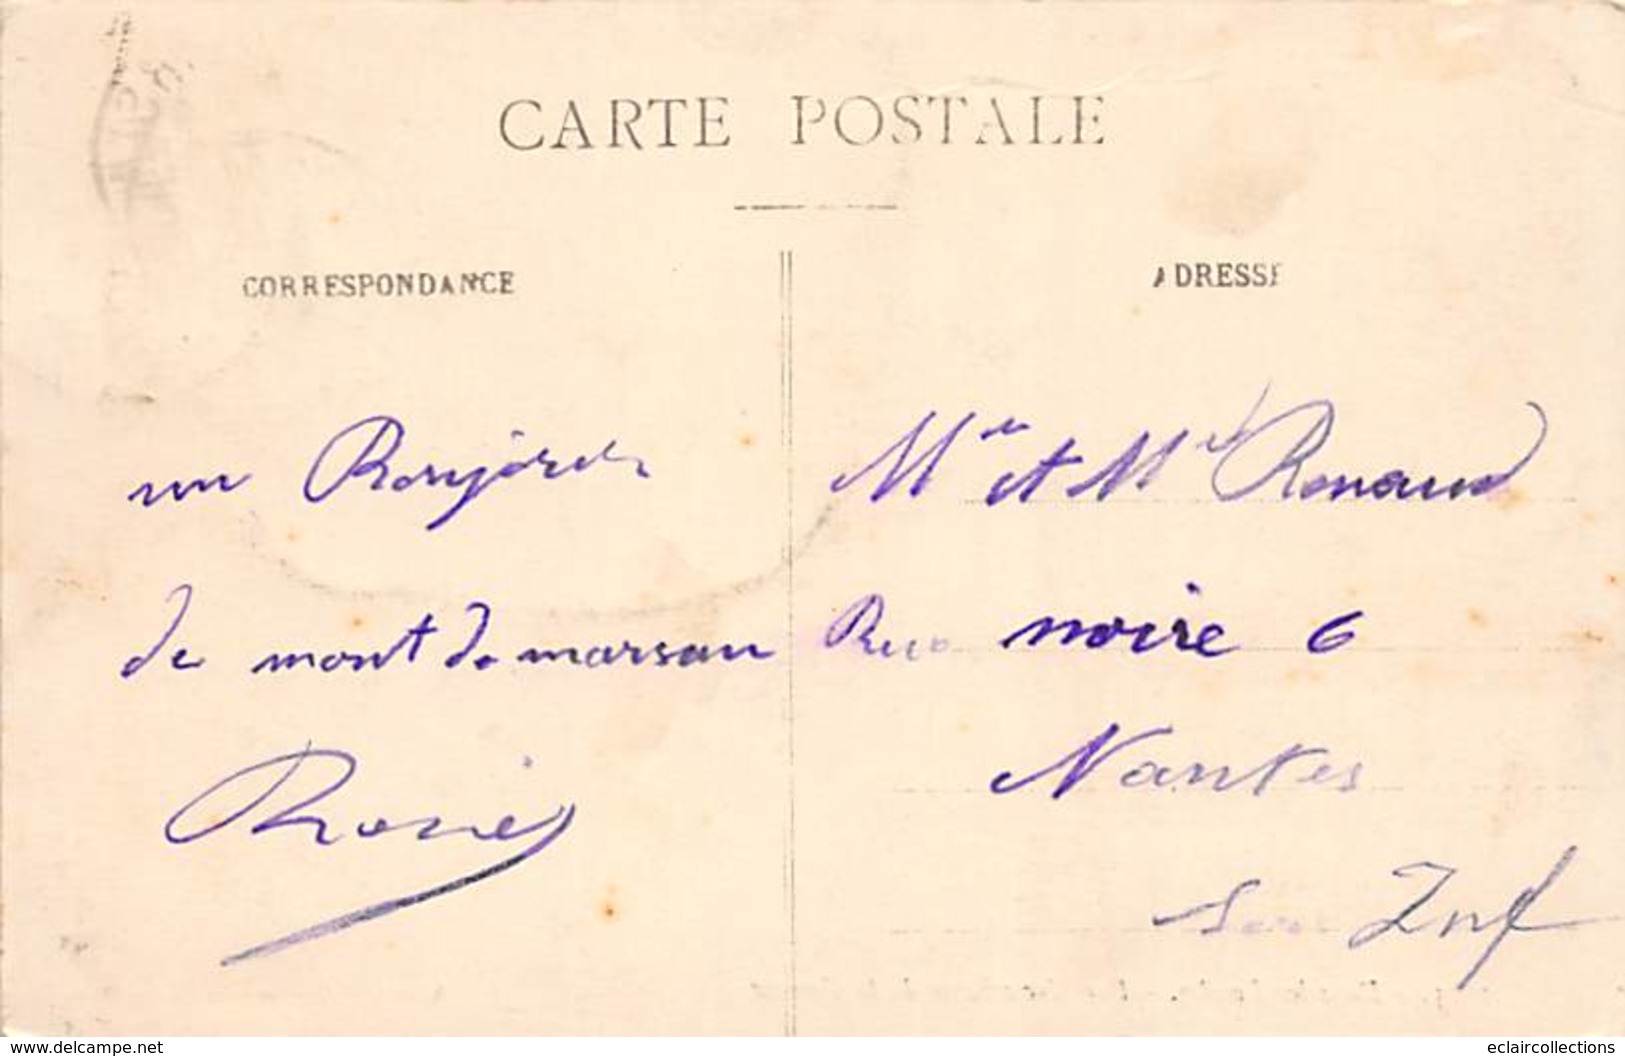 CARTE POSTALE
CORRESPONDANCE
ADRESSE
un Bonjour
de mont de marsan
Rosie
Mr et Me Renaud
Rue noire 6
Nantes
Inf
www.delcampe.net
eclaircollections